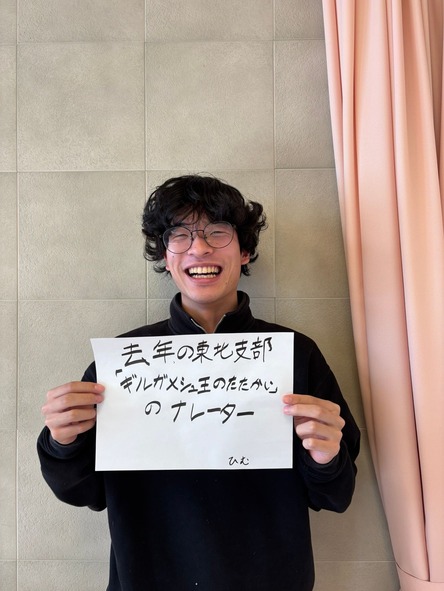 去年の東北支部
「ギルガメシュ王のたたかい」
のナレーター
ひむ